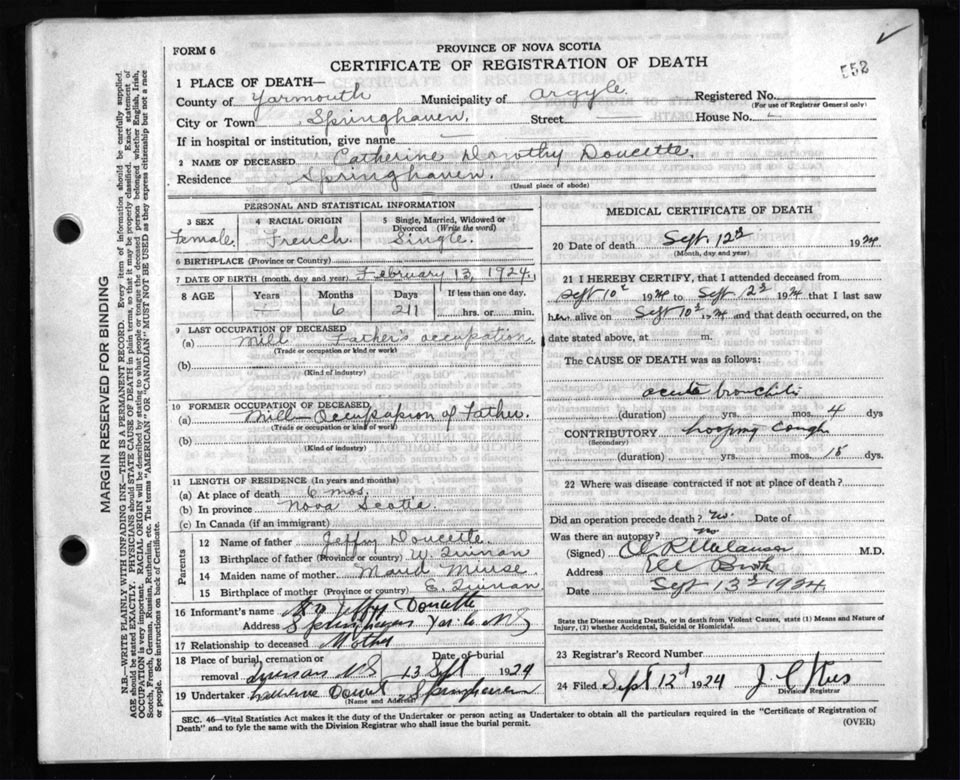 FORM 6
PROVINCE OF NOVA SCOTIA
CERTIFICATE OF REGISTRATION OF DEATH
552
1 PLACE OF DEATH—
County of Yarmouth Municipality of Argyle. Registered No.
(For use of Registrar General only)
City or Town Springhaven. Street House No.
If in hospital or institution, give name
2 NAME OF DECEASED Catherine Dorothy Doucette.
Residence Springhaven.
(Usual place of abode)
PERSONAL AND STATISTICAL INFORMATION
3 SEX 4 RACIAL ORIGIN 5 Single, Married, Widowed or Divorced (Write the word)
Female. French. Single.
6 BIRTHPLACE (Province or Country)
7 DATE OF BIRTH (month, day and year) February 13, 1924.
8 AGE Years Months Days If less than one day,
6 hrs. or min.
9 LAST OCCUPATION OF DECEASED
(a) Mill Father's occupation
(Trade or occupation or kind or work)
(b)
(Kind of industry)
10 FORMER OCCUPATION OF DECEASED
(a) Mill—Occupation of Father.
(Trade or occupation or kind of work)
(b)
(Kind of industry)
11 LENGTH OF RESIDENCE (In years and months)
(a) At place of death 6 mos.
(b) In province Nova Scotia.
(c) In Canada (if an immigrant)
Parents
12 Name of father Jeffy Doucette.
13 Birthplace of father (Province or country) W. Quinan
14 Maiden name of mother Maud Muise.
15 Birthplace of mother (Province or country) E. Quinan.
16 Informant's name Jeffy Doucette
Address Springhaven Yar. Co NS
17 Relationship to deceased Mother
18 Place of burial, cremation or removal Quinan NS Date of burial 13 Sept 1924
19 Undertaker Springhaven
(Name and Address)
MEDICAL CERTIFICATE OF DEATH
20 Date of death Sept 12th 1924
(Month, day and year)
21 I HEREBY CERTIFY, that I attended deceased from
Sept 10th 1924 to Sept 12th 1924 that I last saw
her alive on Sept 10th 1924 and that death occurred, on the
date stated above, at m.
The CAUSE OF DEATH was as follows:
acute bronchitis
(duration) yrs. mos. 4 dys
CONTRIBUTORY hooping cough
(Secondary)
(duration) yrs. mos. 15 dys.
22 Where was disease contracted if not at place of death?
Did an operation precede death? no. Date of
Was there an autopsy? no
(Signed) M.D.
Address
Date Sept 13th 1924
State the Disease causing Death, or in death from Violent Causes, state (1) Means and Nature of Injury, (2) whether Accidental, Suicidal or Homicidal.
23 Registrar's Record Number
24 Filed Sept 12th 1924
Division Registrar
SEC. 46—Vital Statistics Act makes it the duty of the Undertaker or person acting as Undertaker to obtain all the particulars required in the "Certificate of Registration of
Death" and to fyle the same with the Division Registrar who shall issue the burial permit. (OVER)
MARGIN RESERVED FOR BINDING
N.B.—WRITE PLAINLY WITH UNFADING INK—THIS IS A PERMANENT RECORD. Every item of information should be carefully supplied.
AGE should be stated EXACTLY. PHYSICIANS should STATE CAUSE OF DEATH in plain terms, so that it may be properly classified. Exact statement of
OCCUPATION is very important. RACIAL ORIGIN will be described by stating to what people or tongue the deceased person belonged whether English, Irish,
Scotch, French, German, Russian, Ruthenian, etc. The terms "AMERICAN" OR "CANADIAN" MUST NOT BE USED as they express citizenship but not a race
or people. See instructions on back of Certificate.